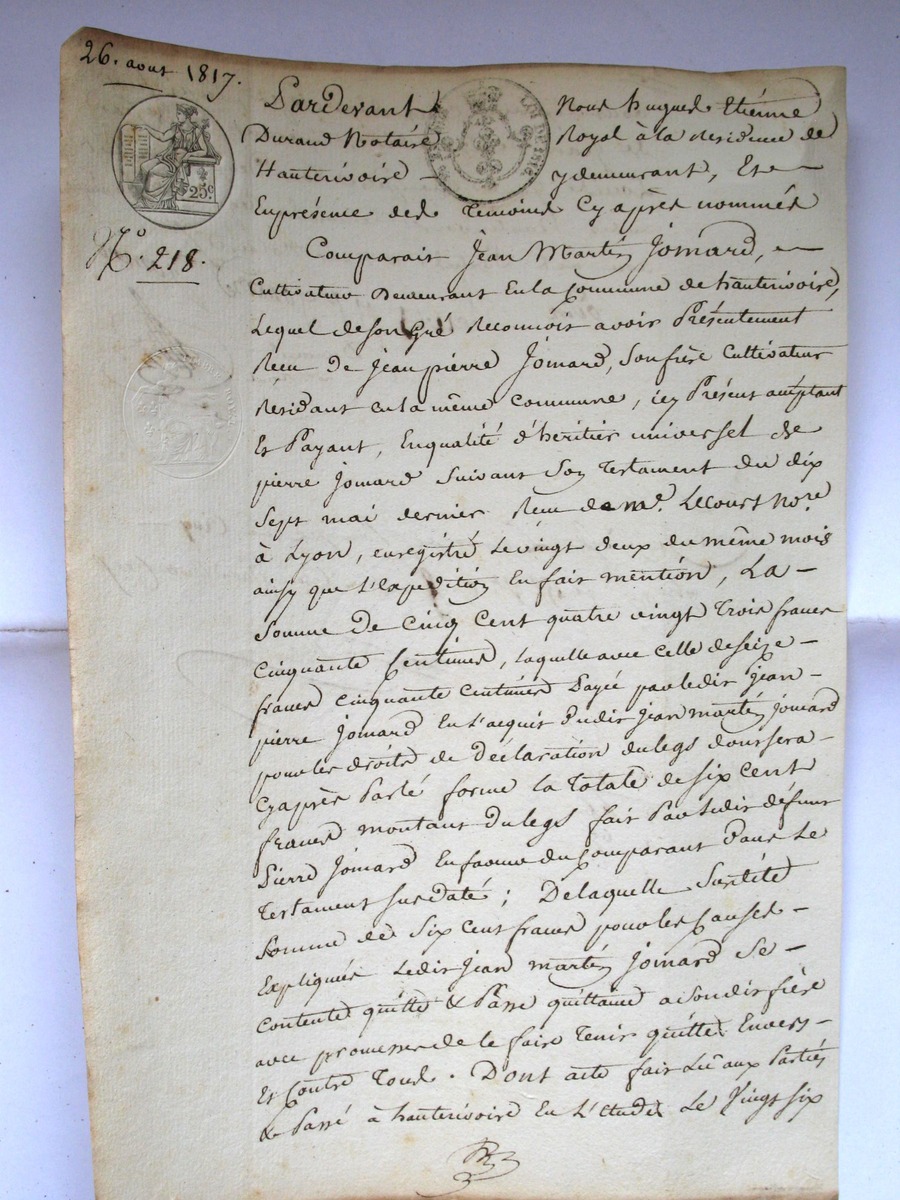 26. aout 1817.
25 c.
N.o 218.
Pardevant Nous hugues Etiénne
Durand Notaire Royal à la résidence de
Hauterivoire – y demeurant, Et –
En présence des témoins Cy après nommés
Comparait Jean Martin Jomard, –
Cultivateur Demeurant En la Commune de hauterivoire,
Lequel de son Gré Reconnoit avoir Présentement
Recu De Jean pierre Jomard, Son frère Cultivateur
Résidant en la même Commune, icy Présent acceptant
Et Payant, En qualité d'héritier universel de
pierre Jomard Suivant Son Testament du dix
Sept mai dernier Recu de M.e Lecourt No.re
à Lyon, enregistré Le vingt deux du même mois
ainsy que L'expedition En fait mention, La –
Somme De Cinq Cent quatre vingt Trois francs
Cinquante Centimes, laquelle avec Celle de Seize –
francs Cinquante Centimes Payée par ledit Jean –
pierre Jomard En L'acquit dudit Jean martin Jomard
pour les droits de Déclaration du legs dont sera –
Cy après Parlé forme la Totale de Six Cent
francs montant du legs fait Par Ledit défunt
Pierre Jomard En faveur du Comparant Dans Le
Testament Sus daté ; De laquelle Susdite
Somme de Six Cent francs pour les Causes –
Expliquées Ledit Jean martin Jomard Se –
Contente quitte & Passe quittance a Son dit frère
avec promesse de le faire Tenir quitte Envers –
Et Contre Tous. Dont acte fait Lû aux Parties
& Passé à hauterivoire En L'étude Le Vingt Six